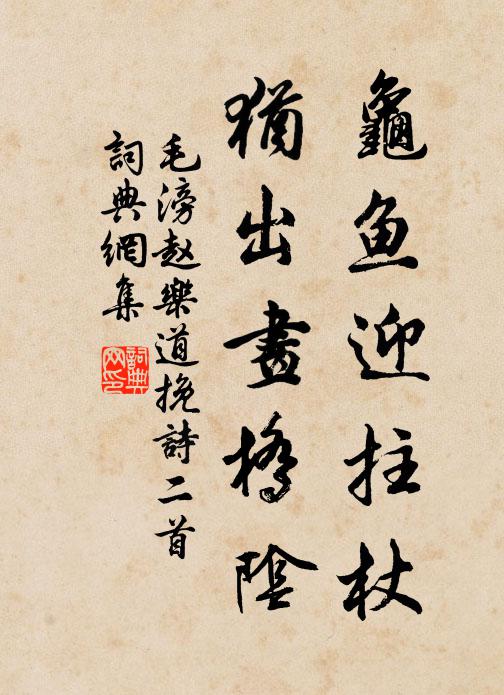 龜魚迎拄杖
猶出畫橋陰
毛滂赵樂道挽詩二首
詞典網集
詞典網印